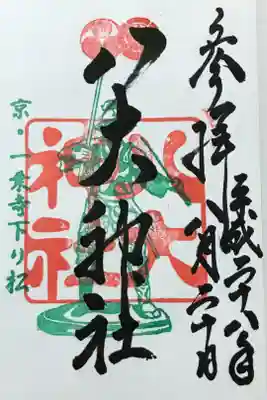 参拝
平成二十八年
八月二十日
八大神社
八大
神社
京・一乗寺下り松